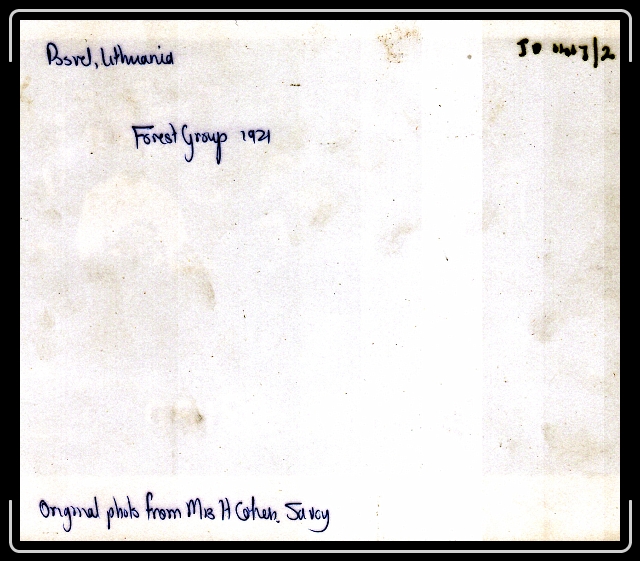 Posvel, Lithuania
Forest Group 1921
Original photo from Mrs H Cohen.